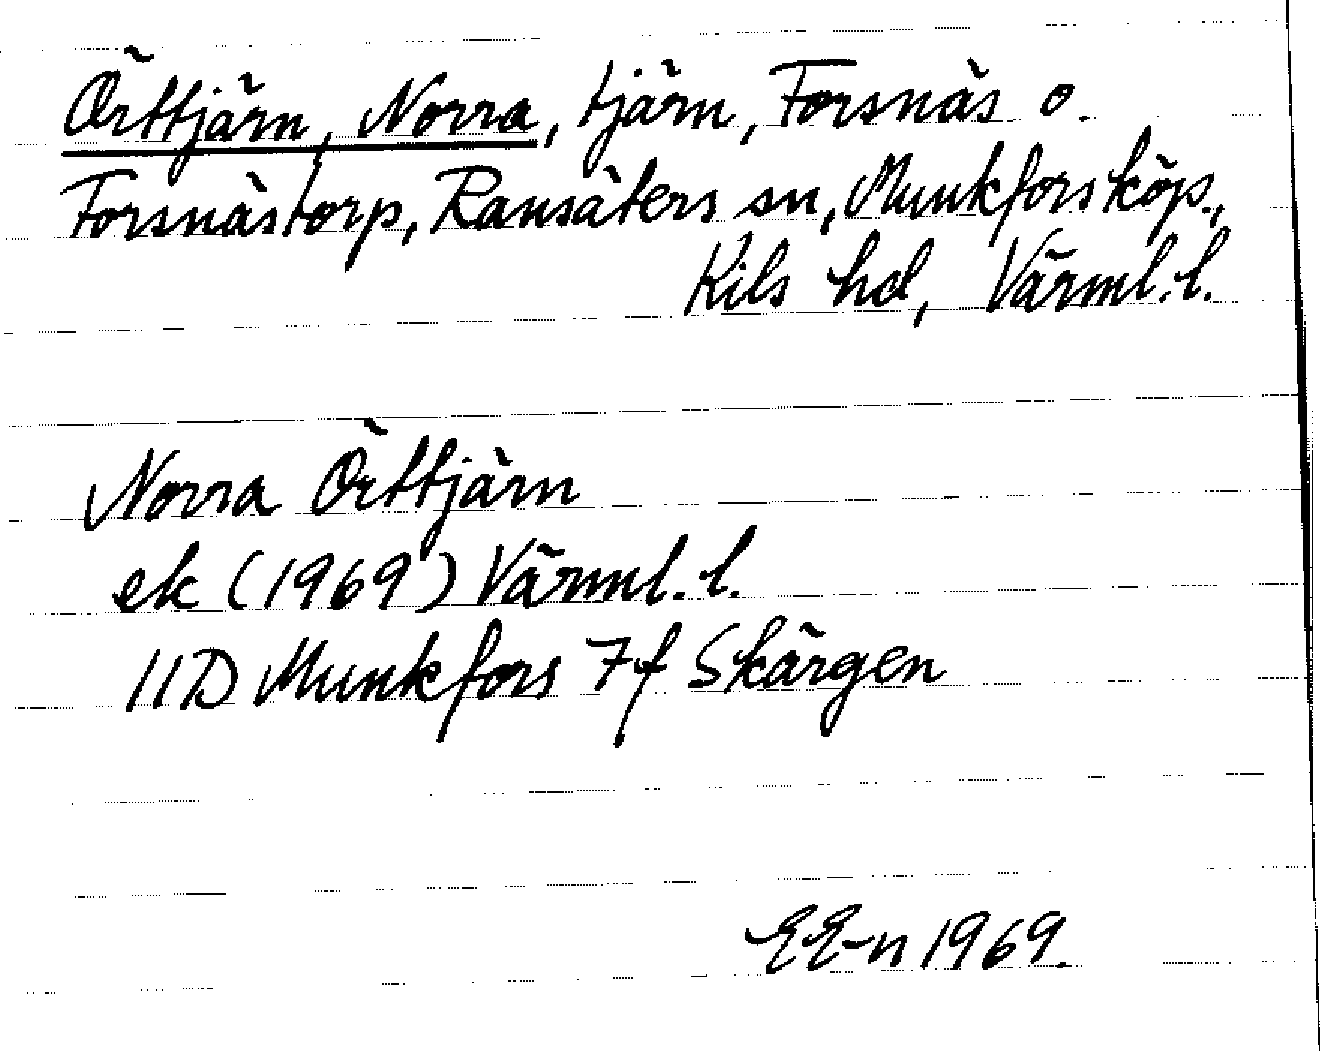 Örttjärn, Norra, tjärn, Forsnäs o.
Forsnästorp, Ransäters sn, Munkfors köp.,
Kils hd, Värml. l.
Norra Örttjärn
ek (1969) Värml. l.
11D Munkfors 7f Skärgen
EE-n 1969.